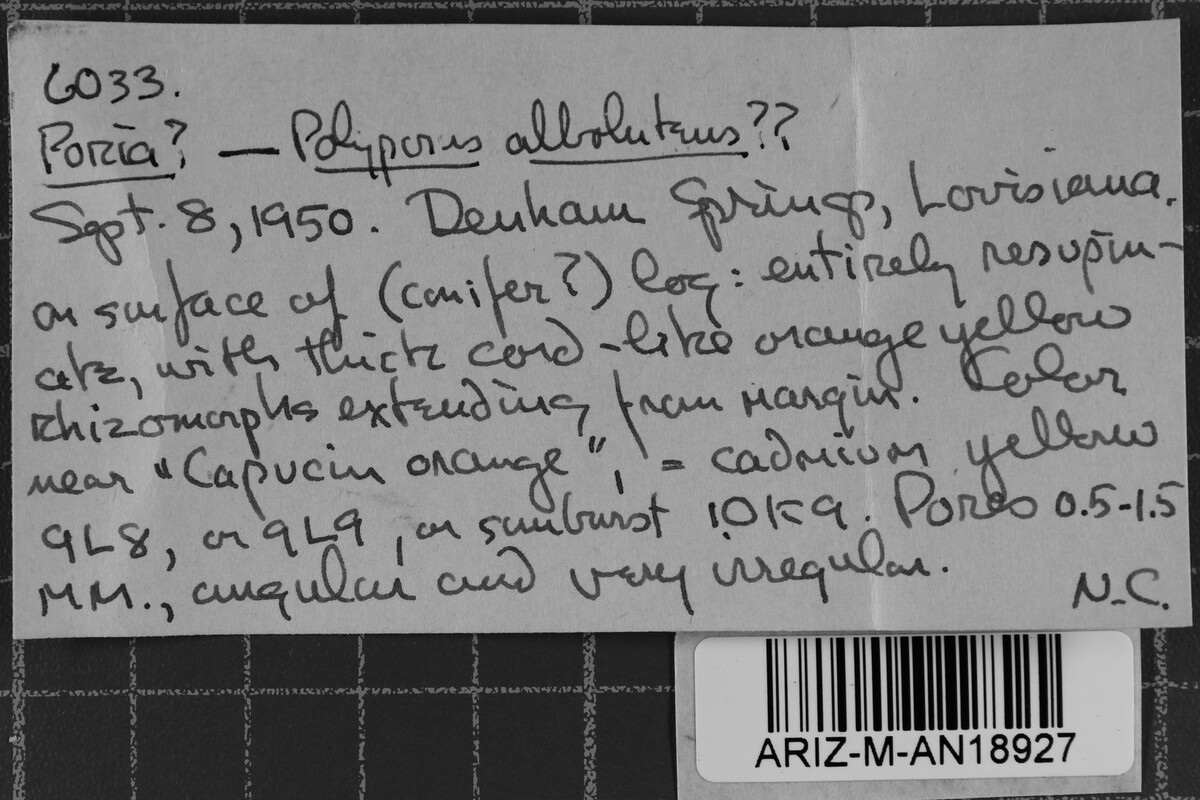 6033.
Poria? — Polyporus alboluteus??
Sept. 8, 1950. Denham Springs, Louisiana.
on surface of (conifer?) log: entirely resupin-
ate, with thick cord-like orange yellow
rhizomorphs extending from margin. Color
near "Capucin orange", = cadmium yellow
9L8, or 9L9, or sunburst 10K9. Pores 0.5-1.5
MM., angular and very irregular.
N.C.
ARIZ-M-AN18927